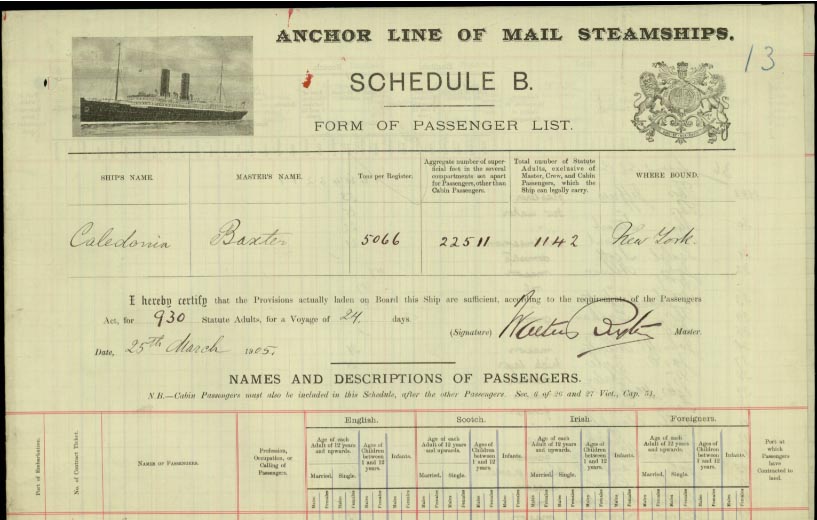 ANCHOR LINE OF MAIL STEAMSHIPS.
13
SCHEDULE B.
FORM OF PASSENGER LIST.
SHIP'S NAME.
MASTER'S NAME.
Tons per Register.
Aggregate number of super-
ficial feet in the several
compartments set apart
for Passengers, other than
Cabin Passengers.
Total number of Statute
Adults, exclusive of
Master, Crew, and Cabin
Passengers, which the
Ship can legally carry.
WHERE BOUND.
Caledonia Baxter 5066 22511 1142 New York.
I hereby certify that the Provisions actually laden on Board this Ship are sufficient, according to the requirements of the Passengers
Act, for 930 Statute Adults, for a Voyage of 24. days.
(Signature) Walter Baxter Master.
Date, 25th March 1905.
NAMES AND DESCRIPTIONS OF PASSENGERS.
N.B.—Cabin Passengers must also be included in this Schedule, after the other Passengers. Sec. 6 of 26 and 27 Vict., Cap. 51.
Port of Embarkation.
No. of Contract Ticket.
NAMES OF PASSENGERS.
Profession,
Occupation, or
Calling of
Passengers.
English. Scotch. Irish. Foreigners.
Age of each
Adult of 12 years
and upwards.
Ages of
Children
between
1 and 12
years.
Infants.
Age of each
Adult of 12 years
and upwards.
Ages of
Children
between
1 and 12
years.
Infants.
Age of each
Adult of 12 years
and upwards.
Ages of
Children
between
1 and 12
years.
Infants.
Age of each
Adult of 12 years
and upwards.
Ages of
Children
between
1 and 12
years.
Infants.
Port at
which
Passengers
have
Contracted to
land.
Married. Single. Married. Single. Married. Single. Married. Single.
Males Females Males Females Males Females Males Females Males Females Males Females Males Females Males Females Males Females Males Females Males Females Males Females Males Females Males Females Males Females Males Females